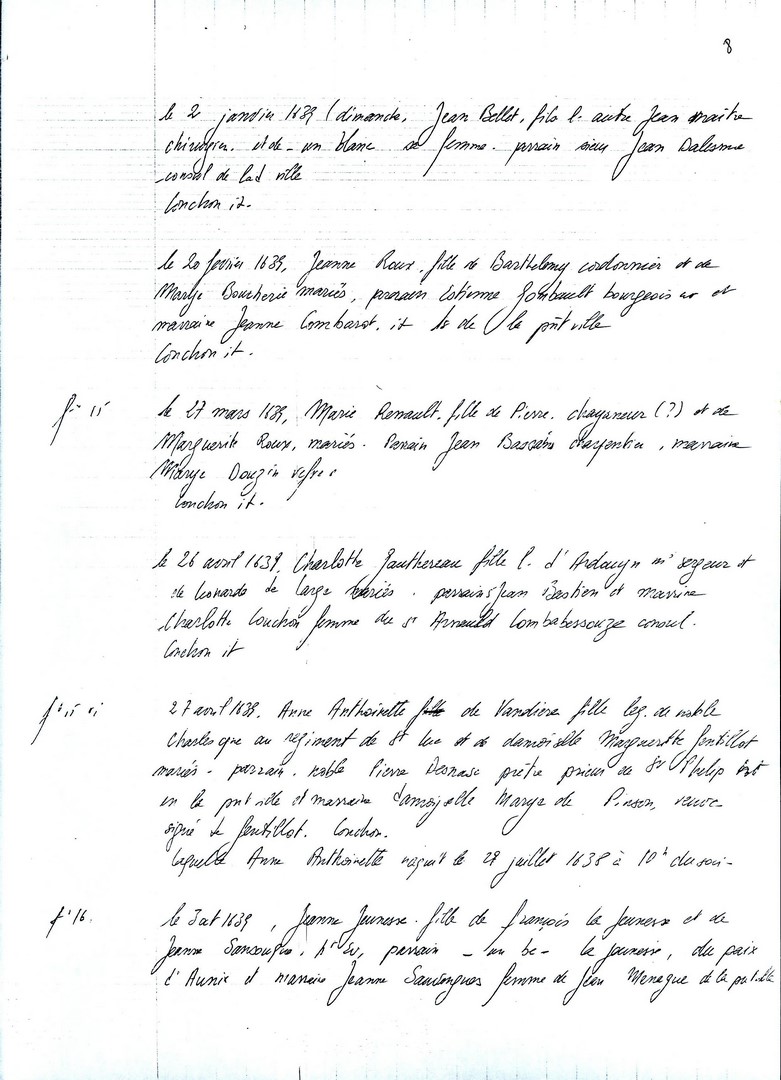 8
le 2 janvier 1639 (dimanche, Jean Bellet, fils l. autre Jean maitre
chirurgien, et de - un blanc sa femme. parrain sieur Jean Dalesme
consul de lad ville
Conchon it.
le 20 fevrier 1639, Jeanne Roux, fille de Barthelemy cordonnier et de
Marye Boucherie mariés, parrain Estienne Jonbault bourgeois et
marraine Jeanne Combarot, it de la pnt ville
Conchon it.
f° 15 le 27 mars 1639, Marie Renault, fille de Pierre, (?) et de
Marguerite Roux, mariés. Parrain Jean charpentier, marraine
Marye Douzin
Conchon it.
le 26 avril 1639, Charlotte Jauthereau fille l. d'Ardouyn sergeur et
de Leonarde de Large mariés. parrains Jean Bastien et marrine
Charlotte Conchon femme du sr Arnauld Combabessouze consul.
Conchon it
27 avril 1639, Anne Anthoinette de Vandiere fille leg. de noble
Charles que au regiment de St Luc et de damoiselle Marguerite Jentillot
mariés - parrain, noble Pierre Desnase prêtre prieur de St Phelip
en la pnt ville et marraine damoyselle Marye de Pinson, veuve
signé de Jentillot. Conchon.
laquelle Anne Anthoinette naquit le 28 juillet 1638 à 10h du soir -
f° 16. le 3 at 1639, Jeanne Jeunesse, fille de françois la Jeunesse et de
Jeanne parrain - un bc - la jeunesse, du paix
d'Aunix et marraine Jeanne Sansongues femme de Jean Menegue de la pnt ville